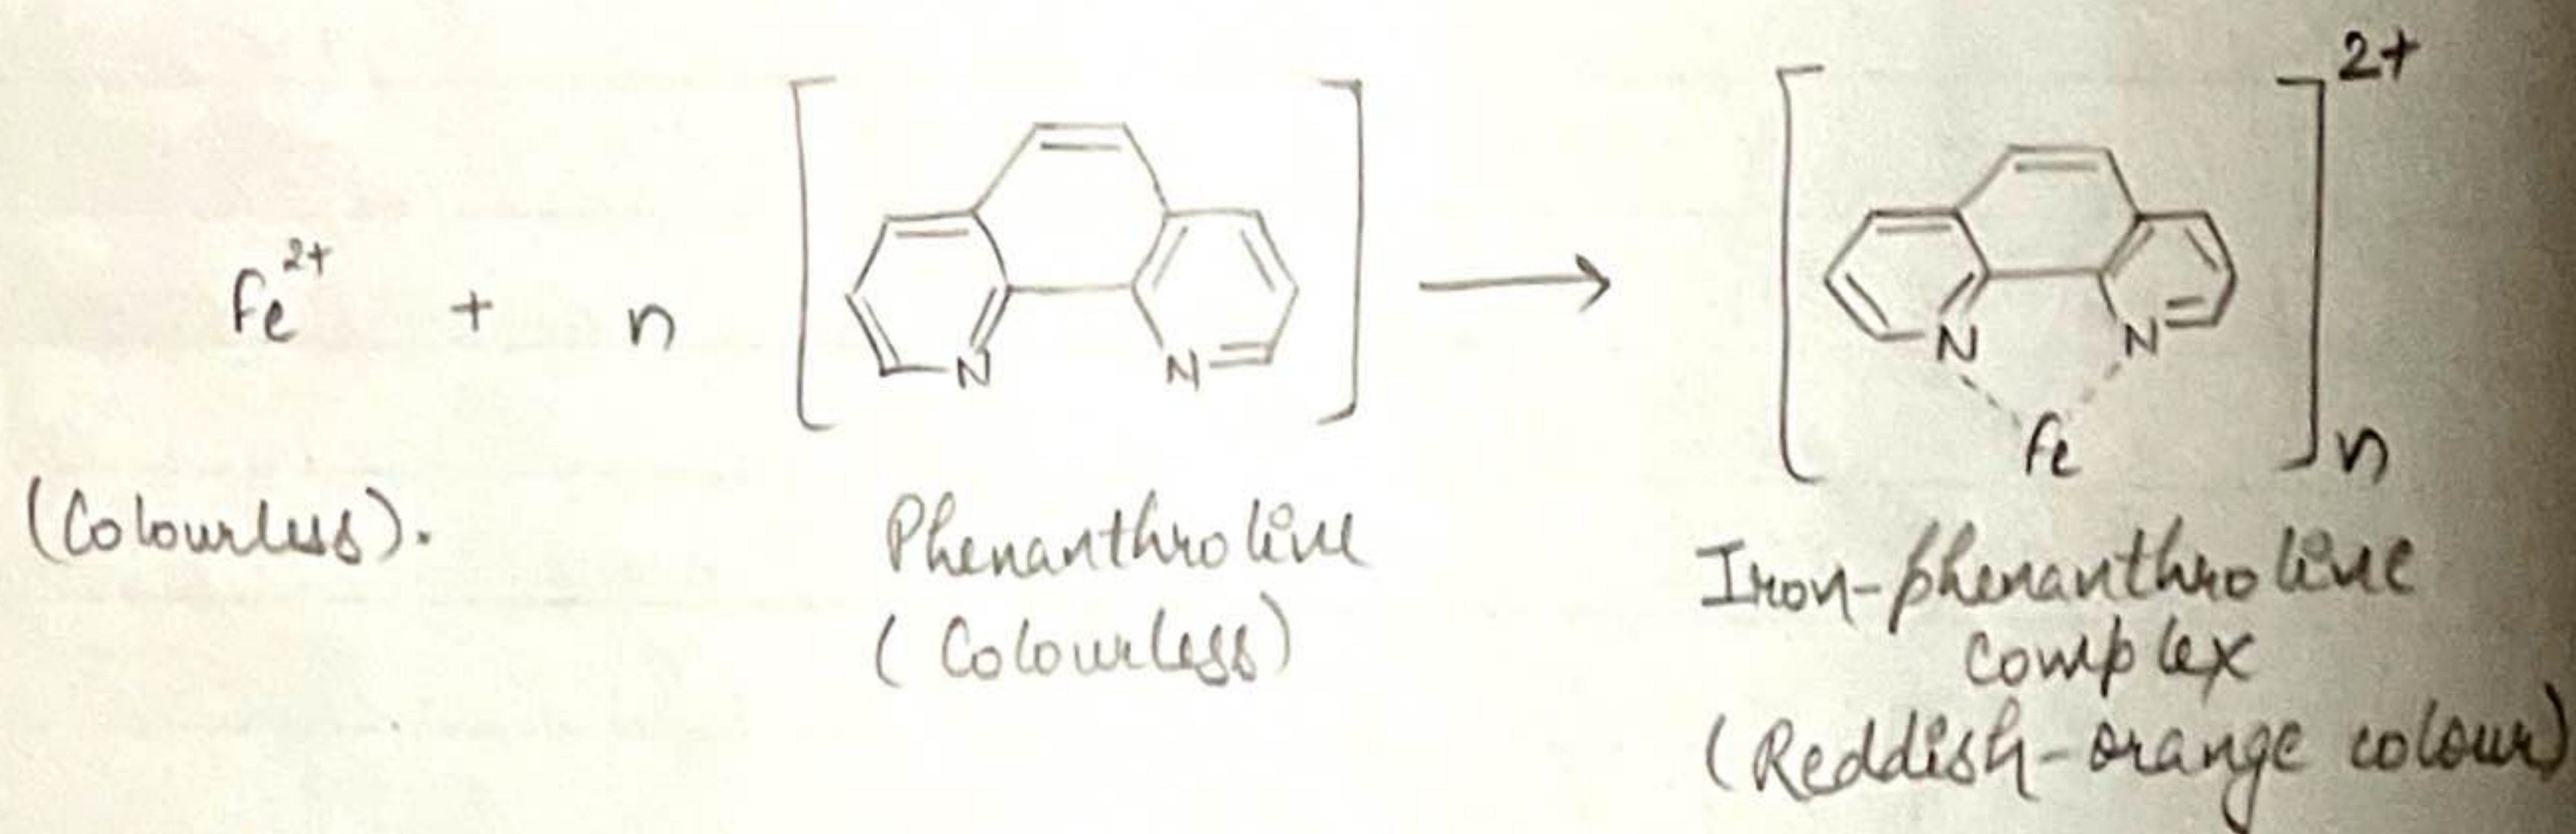 Fe2+ + n [ N N ] → [ N N Fe ]2+ n
(Colourless).
Phenanthroline
(Colourless)
Iron-phenanthroline
complex
(Reddish-orange colour)